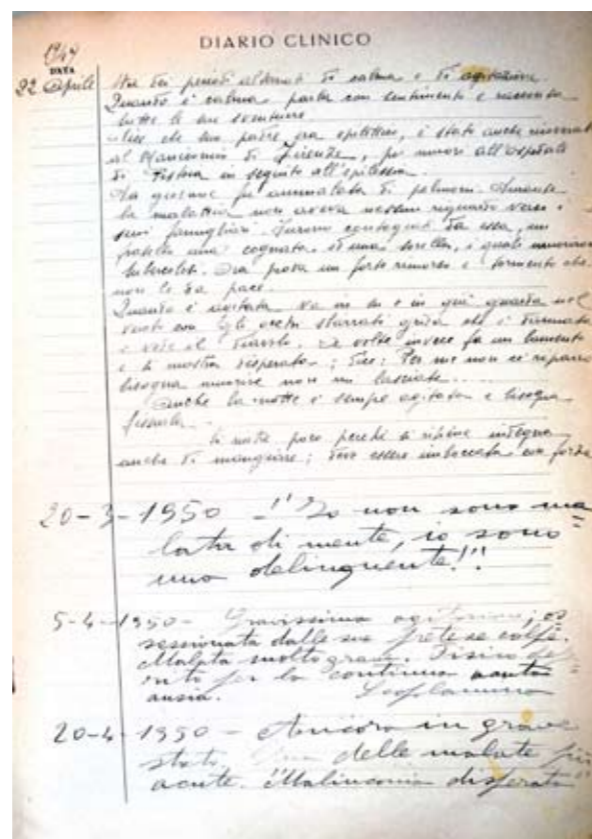 DIARIO CLINICO
1949
DATA
22 Aprile Ha dei periodi alternati di calma e di agitazione.
Quando è calma parla con sentimento e racconta
tutte le sue sventure.
Dice che suo padre era epilettico, è stato anche ricoverato
al Manicomio di Firenze, poi morì all'Ospedale
di Pistoia in seguito all'epilessia.
Da giovane fu ammalata di polmoni. Durante
la malattia non aveva nessun riguardo verso i
suoi famigliari. Furono contagiati da essa, un
fratello una cognata, ed una sorella, i quali morirono
tubercolosi. Ora prova un forte rimorso e tormento che
non le dà pace.
Quando è agitata va in su e in giù guarda nel
vuoto con gli occhi sbarrati grida che è dannata
e vede il diavolo. Le volte invece fa un lamento
e si mostra disperata; dice: Per me non ci riparo
bisogna morire non mi lasciate...
Anche la notte è sempre agitata e bisogna
fissarla.
Si nutre poco perchè si ritiene indegna
anche di mangiare; deve essere imboccata con forza
20-3-1950 - !"Io non sono ma=
lata di mente, io sono
una delinquente!!"
5-4-1950 - Gravissima agitazione; os
sessionata dalle sue pretese colpe.
Malata molto grave. Fisico
per la continua
ansia. Scopolamina
20-4-1950 - Ancora in grave
stato. Una delle malate più
acute. Malinconia disperata